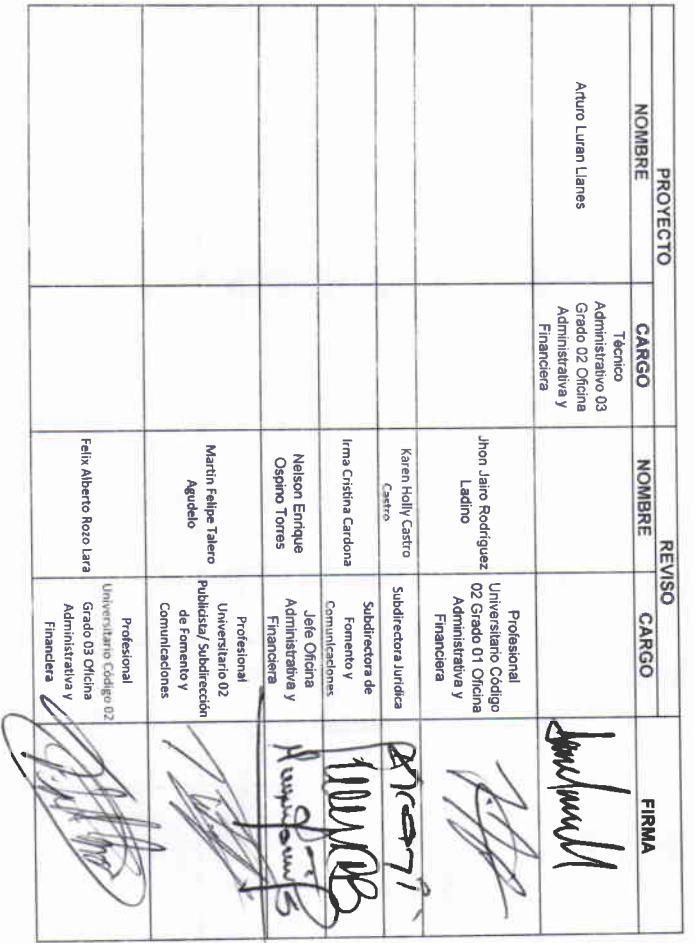 PROYECTO
REVISO
FIRMA
NOMBRE
CARGO
NOMBRE
CARGO
Arturo Luran Llanes
Técnico
Administrativo 03
Grado 02 Oficina
Administrativa y
Financiera
Jhon Jairo Rodríguez
Ladino
Profesional
Universitario Código
02 Grado 01 Oficina
Administrativa y
Financiera
Karen Holly Castro
Castro
Subdirectora Juridica
Irma Cristina Cardona
Subdirectora de
Fomento y
Comunicaciones
Nelson Enrique
Ospino Torres
Jefe Oficina
Administrativa y
Financiera
Martin Felipe Talero
Agudelo
Profesional
Universitario 02
Publicista/ Subdirección
de Fomento y
Comunicaciones
Felix Alberto Rozo Lara
Profesional
Universitario Código 02
Grado 03 Oficina
Administrativa y
Financiera